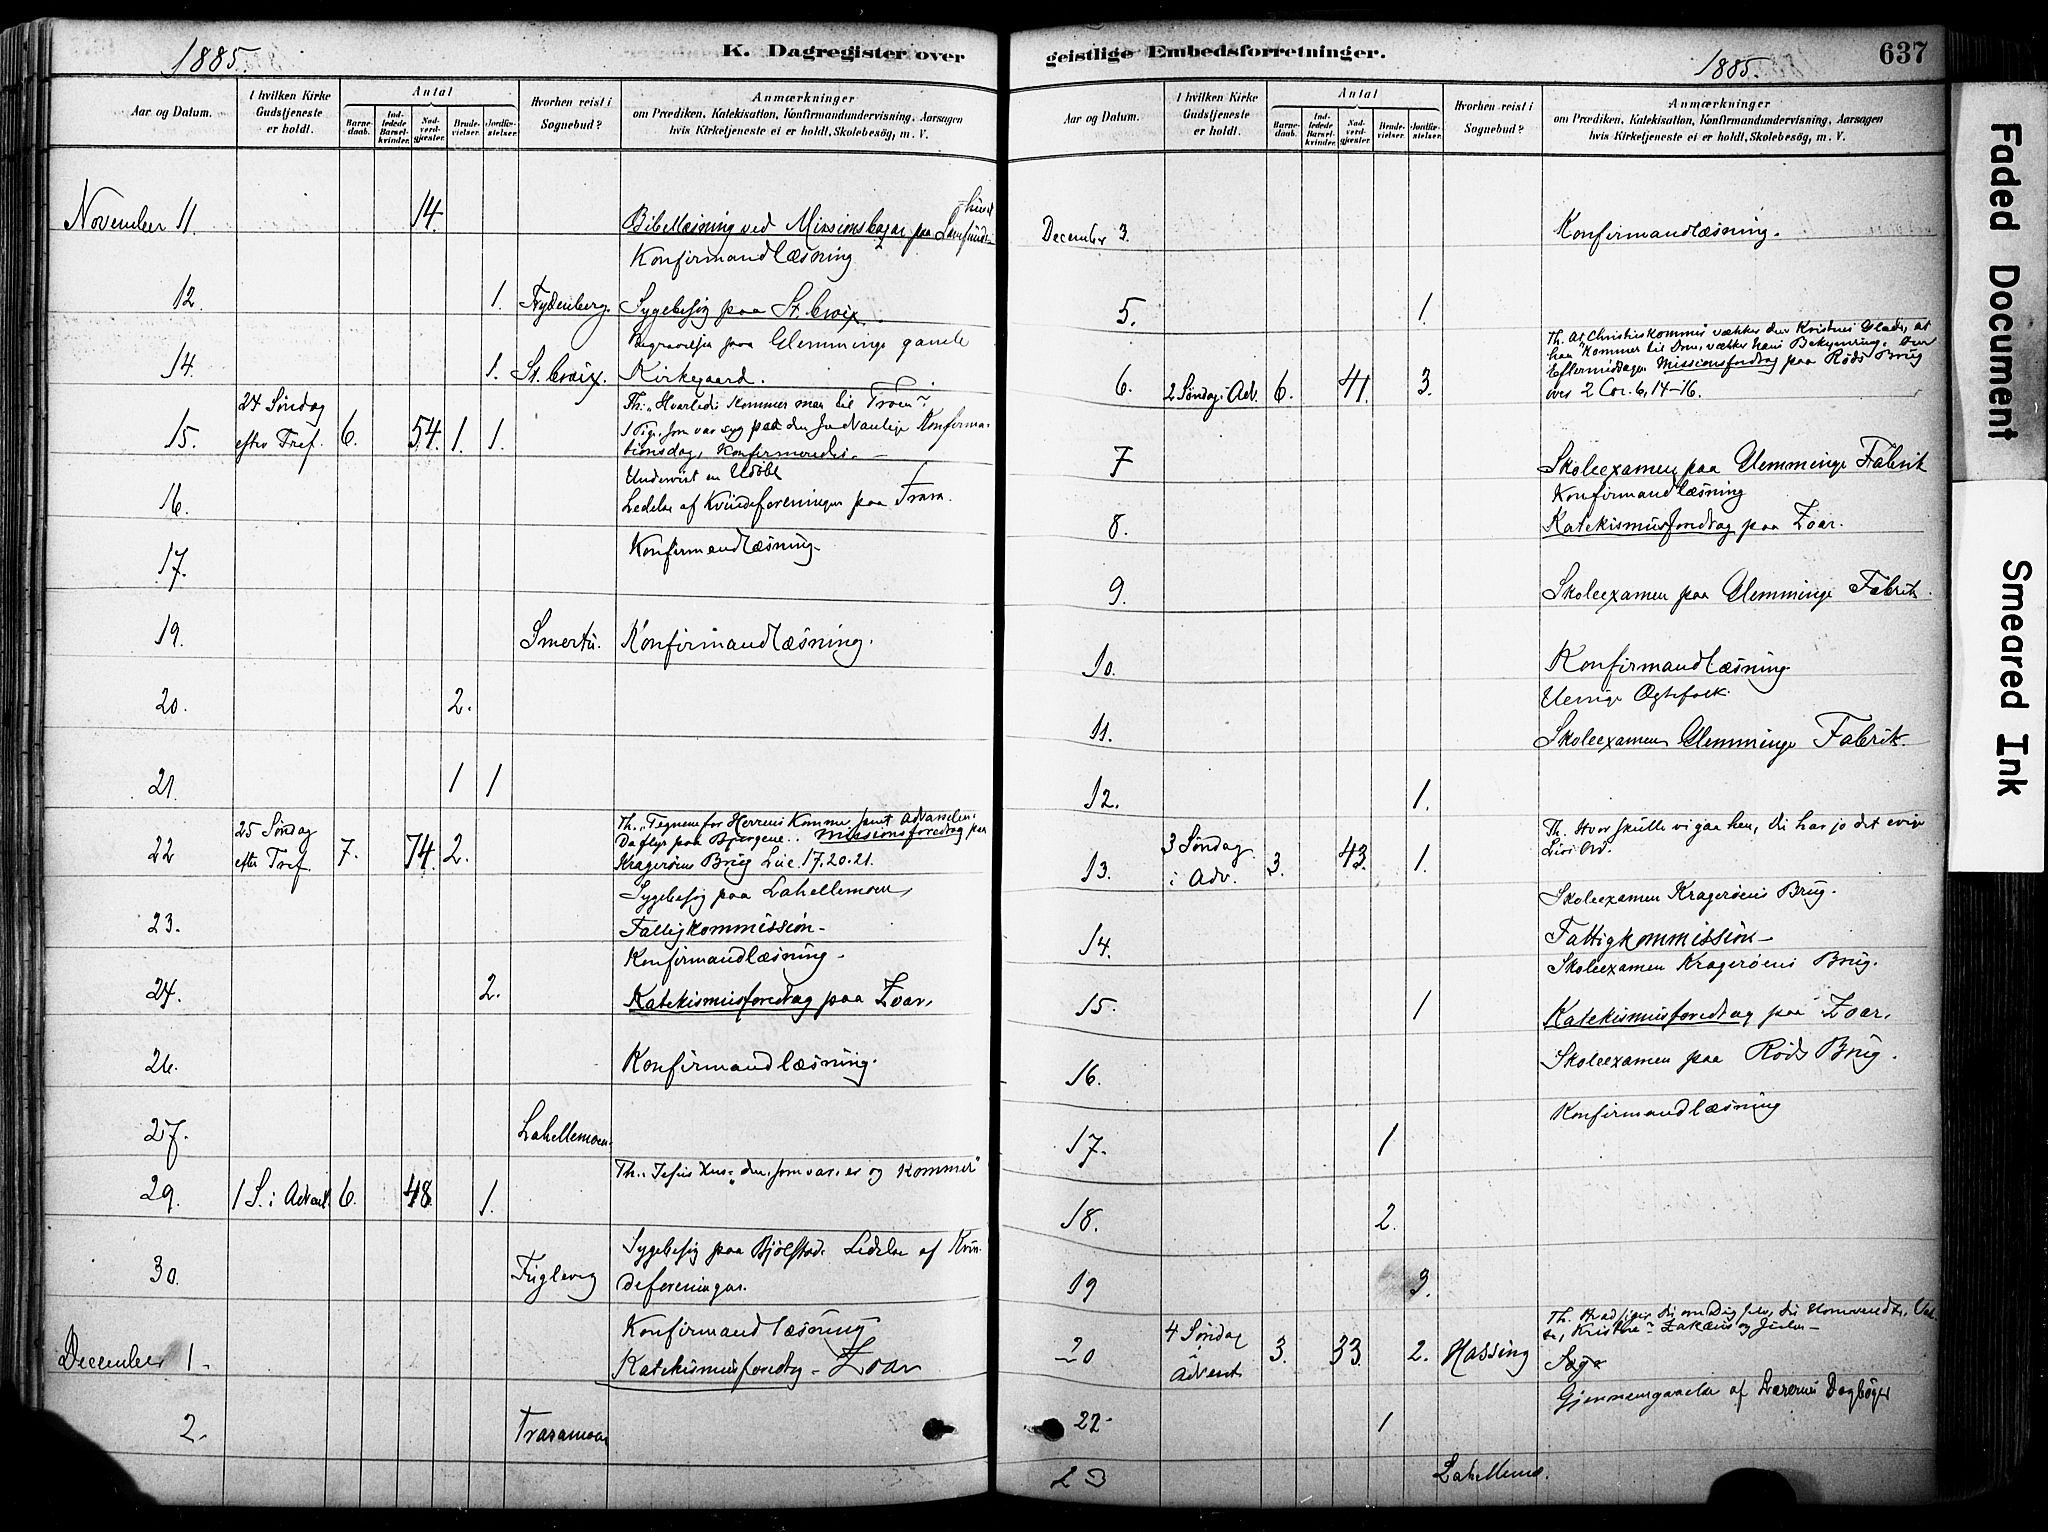 1885.
K. Dagregister over
Aar og Datum.
I hvilken Kirke Gudstjeneste er holdt.
Antal
Barnedaab.
Indledede Barselkvinder.
Nadverdgjester.
Brudevielser.
Jordfæstelser.
Hvorhen reist i Sognebud?
Anmærkninger
om Prædiken, Katekisation, Konfirmandundervisning, Aarsagen
hvis Kirketjeneste ei er holdt, Skolebesög, m. V.
November 11. 14. Bibellæsning ved Missionsbazar paa
Konfirmandlæsning
12. 1. Frydenberg. Sygebesøg paa St. Croix.
Begravelse paa Glemminge gamle
14. 1. St. Croix. Kirkegaard.
24 Søndag Th. "Hvorledes kommer man til Troen"?
15. efter Tref. 6. 54. 1. 1. 1 Pige, som var syg paa den sedvanlige Konfirma-
tionsdag, Konfirmeredes.
Underviist en Udøbt
16. Ledelse af Kvindeforeningen paa Trara.
17. Konfirmandlæsning.
19. Smertu. Konfirmandlæsning.
20. 2.
21. 1 1
25 Søndag Th. "Tegnene for Herrens Komme samt Advarselen:
22 efter Tref. 7. 74. 2. Da flyr paa Bjergene". Missionsforedrag paa
Kragerøens Brug Luc. 17.20.21.
Sygebesøg paa Lahellemoen,
23. Fattigkommission-
Konfirmandlæsning-
24. 2. Katekismusforedrag paa Zoar,
26. Konfirmandlæsning.
27. Lahellemoen.
Th. Jesus Xus: "den, som var, er og kommer"
29. 1 S. i Advent. 6. 48. 1.
30. Fuglevig Sygebesøg paa Bjølstad. Ledelse af Kvin-
deforeningen.
Konfirmandlæsning
December 1. Katekismusforedrag - Zoar
2. Traramoen
geistlige Embedsforretninger.
1885.
637
Aar og Datum.
I hvilken Kirke Gudstjeneste er holdt.
Antal
Barnedaab.
Indledede Barselkvinder.
Nadverdgjester.
Brudevielser.
Jordfæstelser.
Hvorhen reist i Sognebud?
Anmærkninger
om Prædiken, Katekisation, Konfirmandundervisning, Aarsagen
hvis Kirketjeneste ei er holdt, Skolebesög, m. V.
December 3. Konfirmandlæsning.
5. 1.
Th. At Christies komme vækker den Kristnes Glæde, at
han kommer til Dom, vækker hans Bekymring. Om
Eftermiddagen Missionsforedrag paa Røds Brug
6. 2 Søndag i Adv. 6. 41. 3. over 2 Cor. 6, 14-16.
7 Skoleexamen paa Glemminge Fabrik
Konfirmandlæsning
8. Katekismusforedrag paa Zoar.
9. Skoleexamen paa Glemminge Fabrik.
10. Konfirmandlæsning
Uenige Ægtefolk.
11. Skoleexamen Glemminge Fabrik.
12. 1.
3 Søndag Th. Hvor skulle vi gaa hen, Du har jo det evige
13. i Adv. 3. 43. 1. Livs Ord.
Skoleexamen Kragerøens Brug.
14. Fattigkommission-
Skoleexamen Kragerøens Brug.
15. 1 Katekismusforedrag paa Zoar,
16. Skoleexamen paa Røds Brug.
Konfirmandlæsning
17. 1
18. 2.
19 3.
4 Søndag Th. Hvad siger Du om Dig selv, Du
20 i Advent 3. 33. 2. Hassing Kristne? Zakæus og
Gjennemgaaelse af Lærernes Dagbøger
22 1
23 Lahellemo.
Faded Document
Smeared Ink